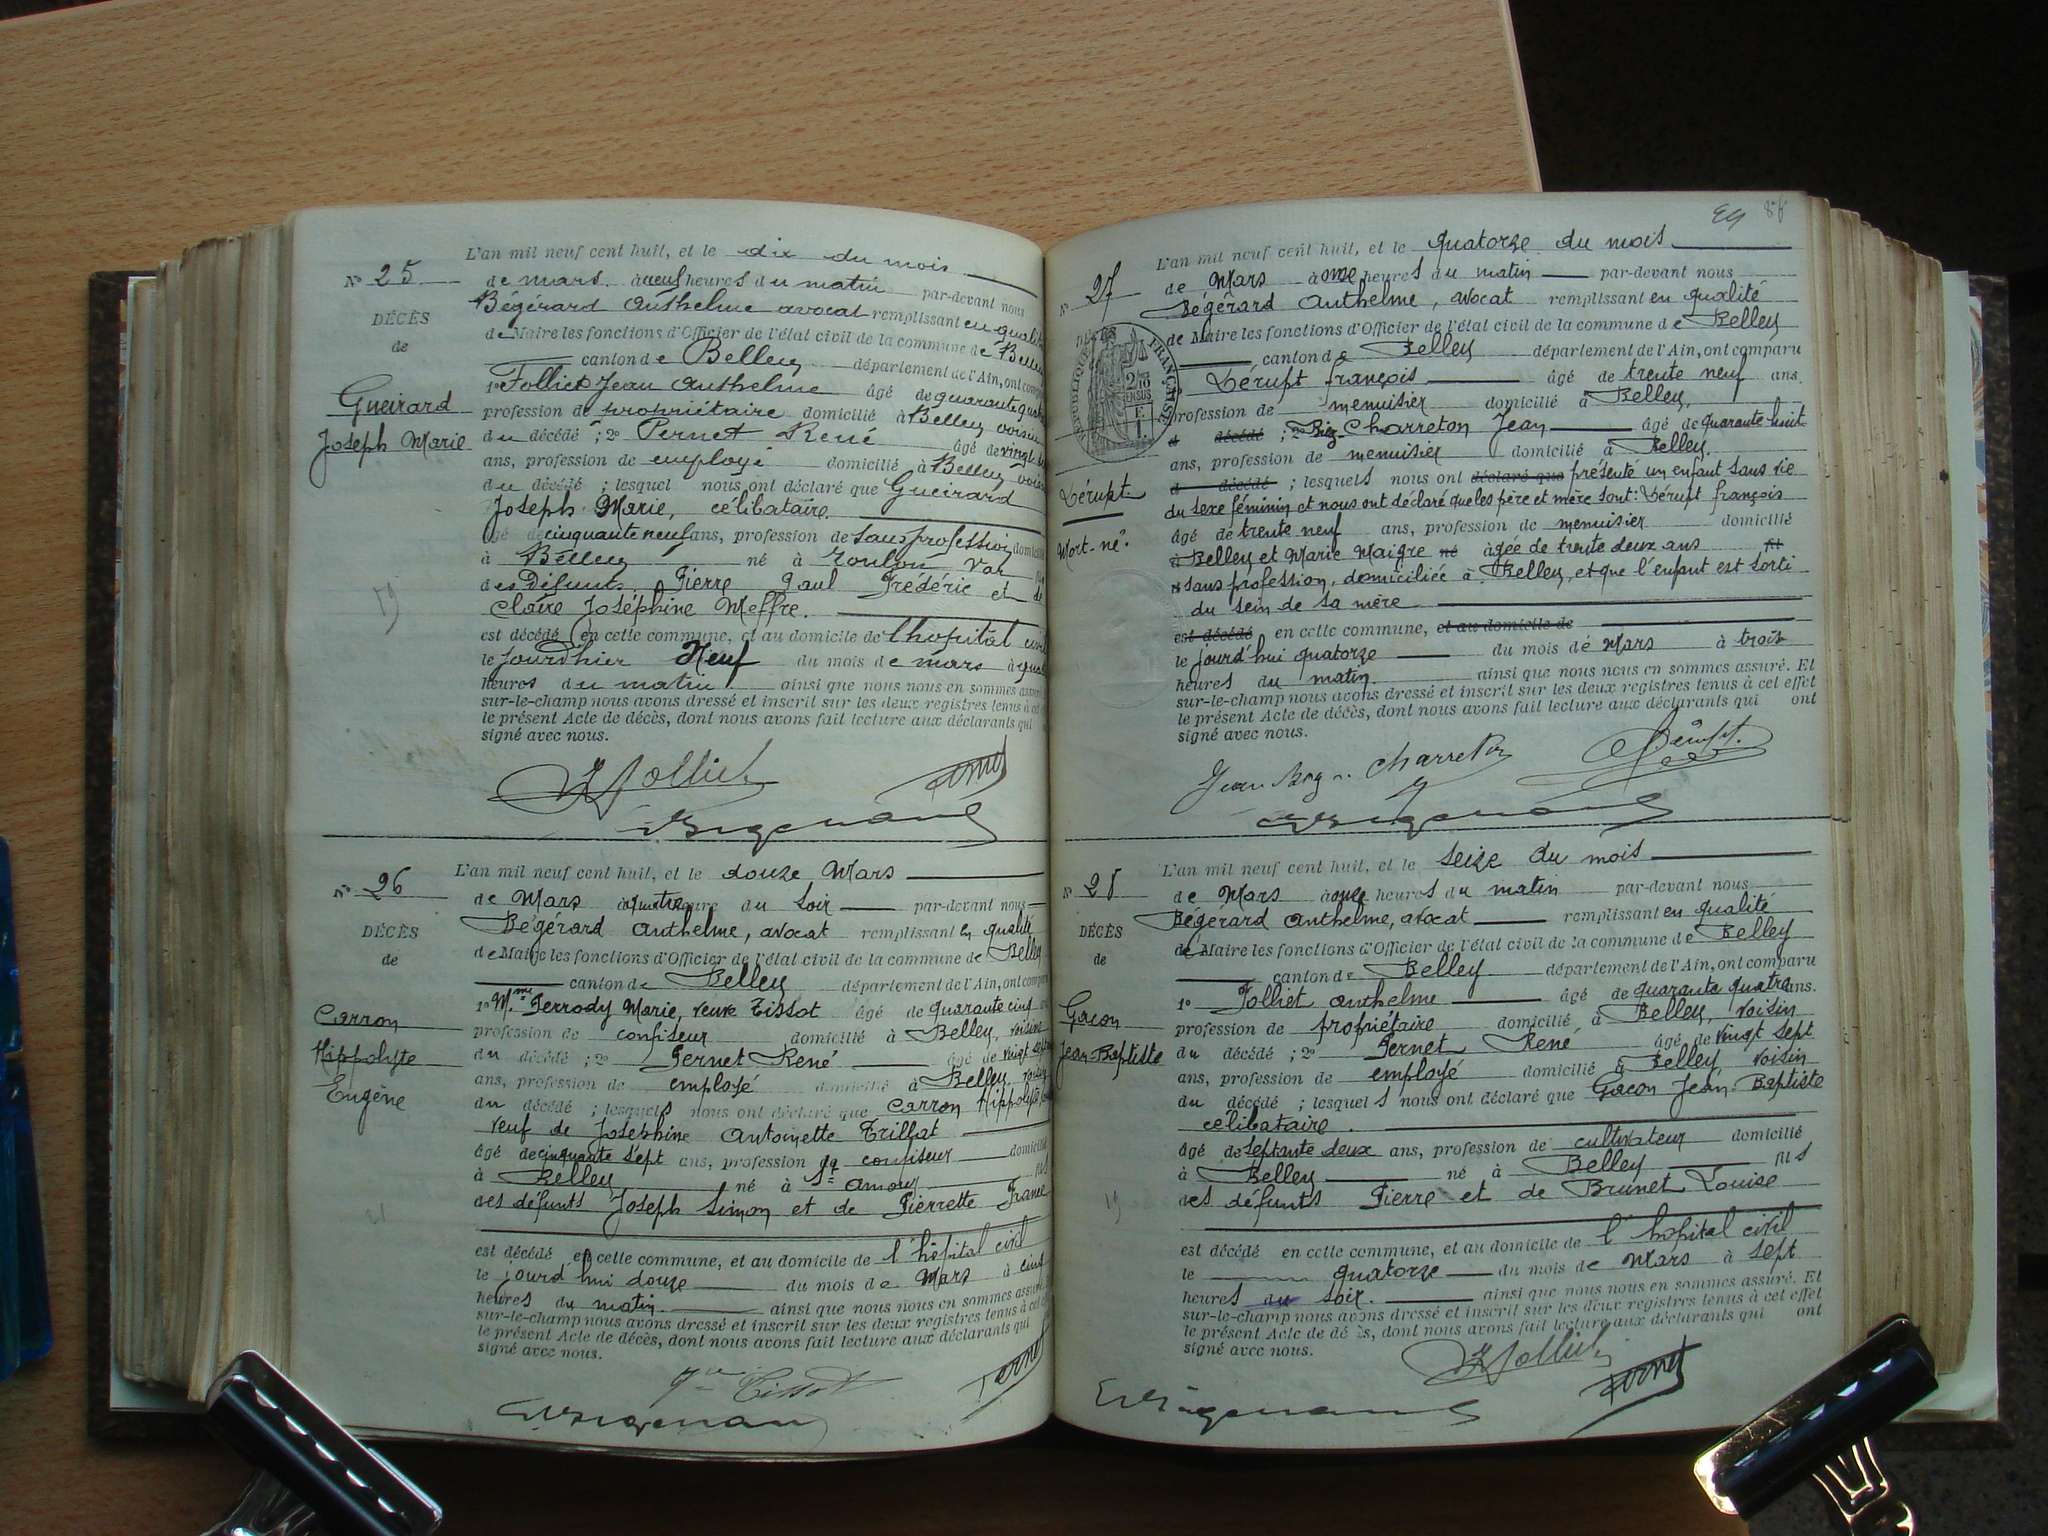 L'an mil neuf cent huit, et le dix du mois
N° 25
de mars à neuf heures du matin par-devant nous
Bégérard Anthelme avocat remplissant en qualité
DÉCÈS
de Maire les fonctions d'Officier de l'état civil de la commune de Belley
de
canton de Belley département de l'Ain, ont comparu
1° Folliet Jean Anthelme âgé de quarante quatre
Gueirard
profession de propriétaire domicilié à Belley voisin
Joseph Marie
du décédé ; 2° Pernet René âgé de vingt
ans, profession de employé domicilié à Belley voisin
du décédé ; lesquels nous ont déclaré que Gueirard
Joseph Marie, célibataire.
âgé de cinquante neuf ans, profession de sans profession domicilié
à Belley né à Toulon Var
des défunts Pierre Paul Frédéric et de
Claire Joséphine Meffre.
19
est décédé en cette commune, et au domicile de l'hopital civil
le jourd'hier Neuf du mois de mars à
heures du matin ainsi que nous nous en sommes assuré
sur-le-champ nous avons dressé et inscrit sur les deux registres tenus à cet
le présent Acte de décès, dont nous avons fait lecture aux déclarants qui
signé avec nous.
L'an mil neuf cent huit, et le douze Mars
N° 26
de Mars à quatre heure du soir par-devant nous
Bégérard Anthelme, avocat remplissant en qualité
DÉCÈS
de Maire les fonctions d'Officier de l'état civil de la commune de Belley
de
canton de Belley département de l'Ain, ont comparu
1° Mme Perrody Marie, veuve Tissot âgé de quarante cinq ans
Carron
profession de confiseur domicilié à Belley, voisine
Hippolyte
du décédé ; 2° Pernet René âgé de vingt sept
Eugène
ans, profession de employé domicilié à Belley, voisin
du décédé ; lesquels nous ont déclaré que Carron Hippolyte
veuf de Josephine Antoinette Trillat
âgé de cinquante sept ans, profession de confiseur domicilié
à Belley né à St Amour fils
des défunts Joseph Simon et de Pierrette France
est décédé en cette commune, et au domicile de l'hôpital civil
le jourd'hui douze du mois de Mars à cinq
heures du matin. ainsi que nous nous en sommes assuré
sur-le-champ nous avons dressé et inscrit sur les deux registres tenus à cet
le présent Acte de décès, dont nous avons fait lecture aux déclarants qui
signé avec nous.
Vve Tissot
L'an mil neuf cent huit, et le quatorze du mois
N° 27
de Mars à onze heures du matin par-devant nous
Bégérard Anthelme, avocat remplissant en qualité
DÉCÈS
de Maire les fonctions d'Officier de l'état civil de la commune de Belley
canton de Belley département de l'Ain, ont comparu
Dérupt françois âgé de trente neuf ans.
profession de menuisier domicilié à Belley.
décédé ; 2° Biez Charreton Jean âgé de quarante huit
ans, profession de menuisier domicilié à Belley.
décédé ; lesquels nous ont déclaré que présenté un enfant sans vie
Dérupt.
du sexe féminin et nous ont déclaré que les père et mère sont: Dérupt françois
Mort-né.
âgé de trente neuf ans, profession de menuisier domicilié
à Belley et Marie Maigre né âgée de trente deux ans
sans profession, domiciliée à Belley, et que l'enfant est sorti
du sein de sa mère
est décédé en cette commune, et au domicile de
le jourd'hui quatorze du mois de Mars à trois
heures du matin. ainsi que nous nous en sommes assuré. Et
sur-le-champ nous avons dressé et inscrit sur les deux registres tenus à cet effet
le présent Acte de décès, dont nous avons fait lecture aux déclarants qui ont
signé avec nous.
L'an mil neuf cent huit, et le seize du mois
N° 28
de Mars à onze heures du matin par-devant nous
Bégérard Anthelme, avocat remplissant en qualité
DÉCÈS
de Maire les fonctions d'Officier de l'état civil de la commune de Belley
de
canton de Belley département de l'Ain, ont comparu
1° Folliet Anthelme âgé de quarante quatre ans.
Gacon
profession de propriétaire domicilié à Belley, voisin
Jean-Baptiste
du décédé ; 2° Pernet René âgé de vingt sept
ans, profession de employé domicilié à Belley, voisin
du décédé ; lesquels nous ont déclaré que Gacon Jean-Baptiste
célibataire.
âgé de septante deux ans, profession de cultivateur domicilié
à Belley né à Belley fils
des défunts Pierre et de Brunet Louise
19
est décédé en cette commune, et au domicile de l'hôpital civil
le quatorze du mois de Mars à sept
heures du soir. ainsi que nous nous en sommes assuré. Et
sur-le-champ nous avons dressé et inscrit sur les deux registres tenus à cet effet
le présent Acte de décès, dont nous avons fait lecture aux déclarants qui ont
signé avec nous.